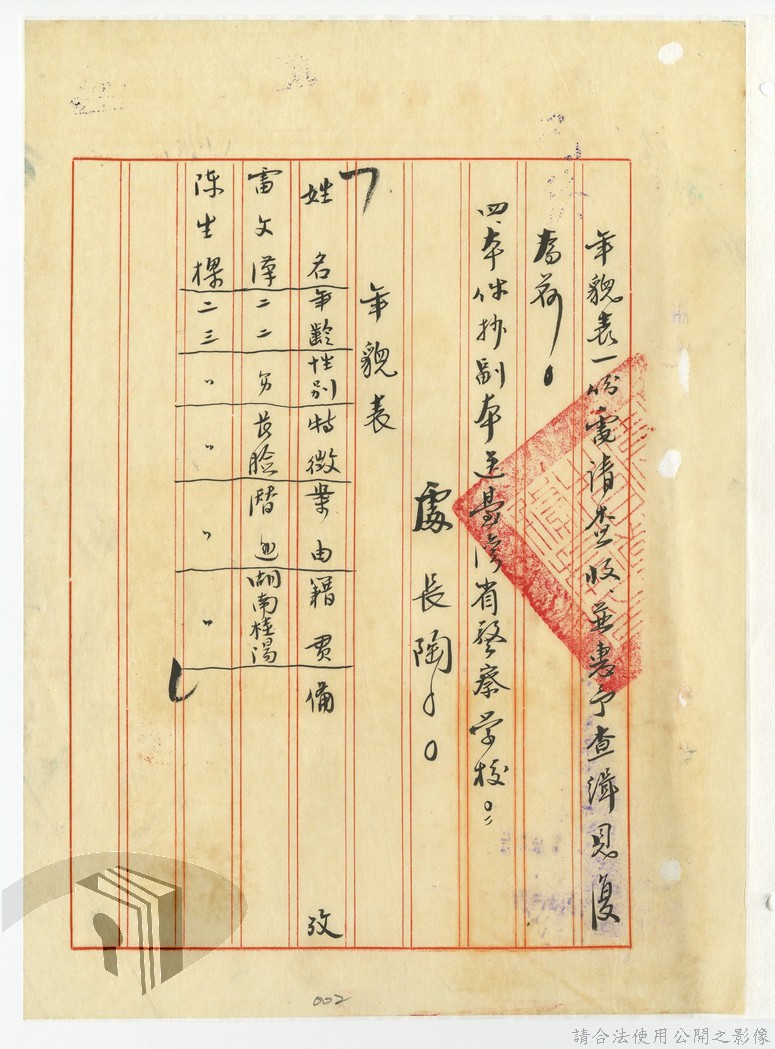 年貌表一份電請查收並惠予查緝見復
為荷。
四、本件抄副本送臺灣省警察學校。
處長陶〇〇
年貌表
姓名 年齡 性別 特徵 案由 籍貫 備攷
雷文漢 二二 男 長臉 潛逃 湖南桂陽
陳生樑 二三 〃 〃 〃 〃
002
請合法使用公開之影像